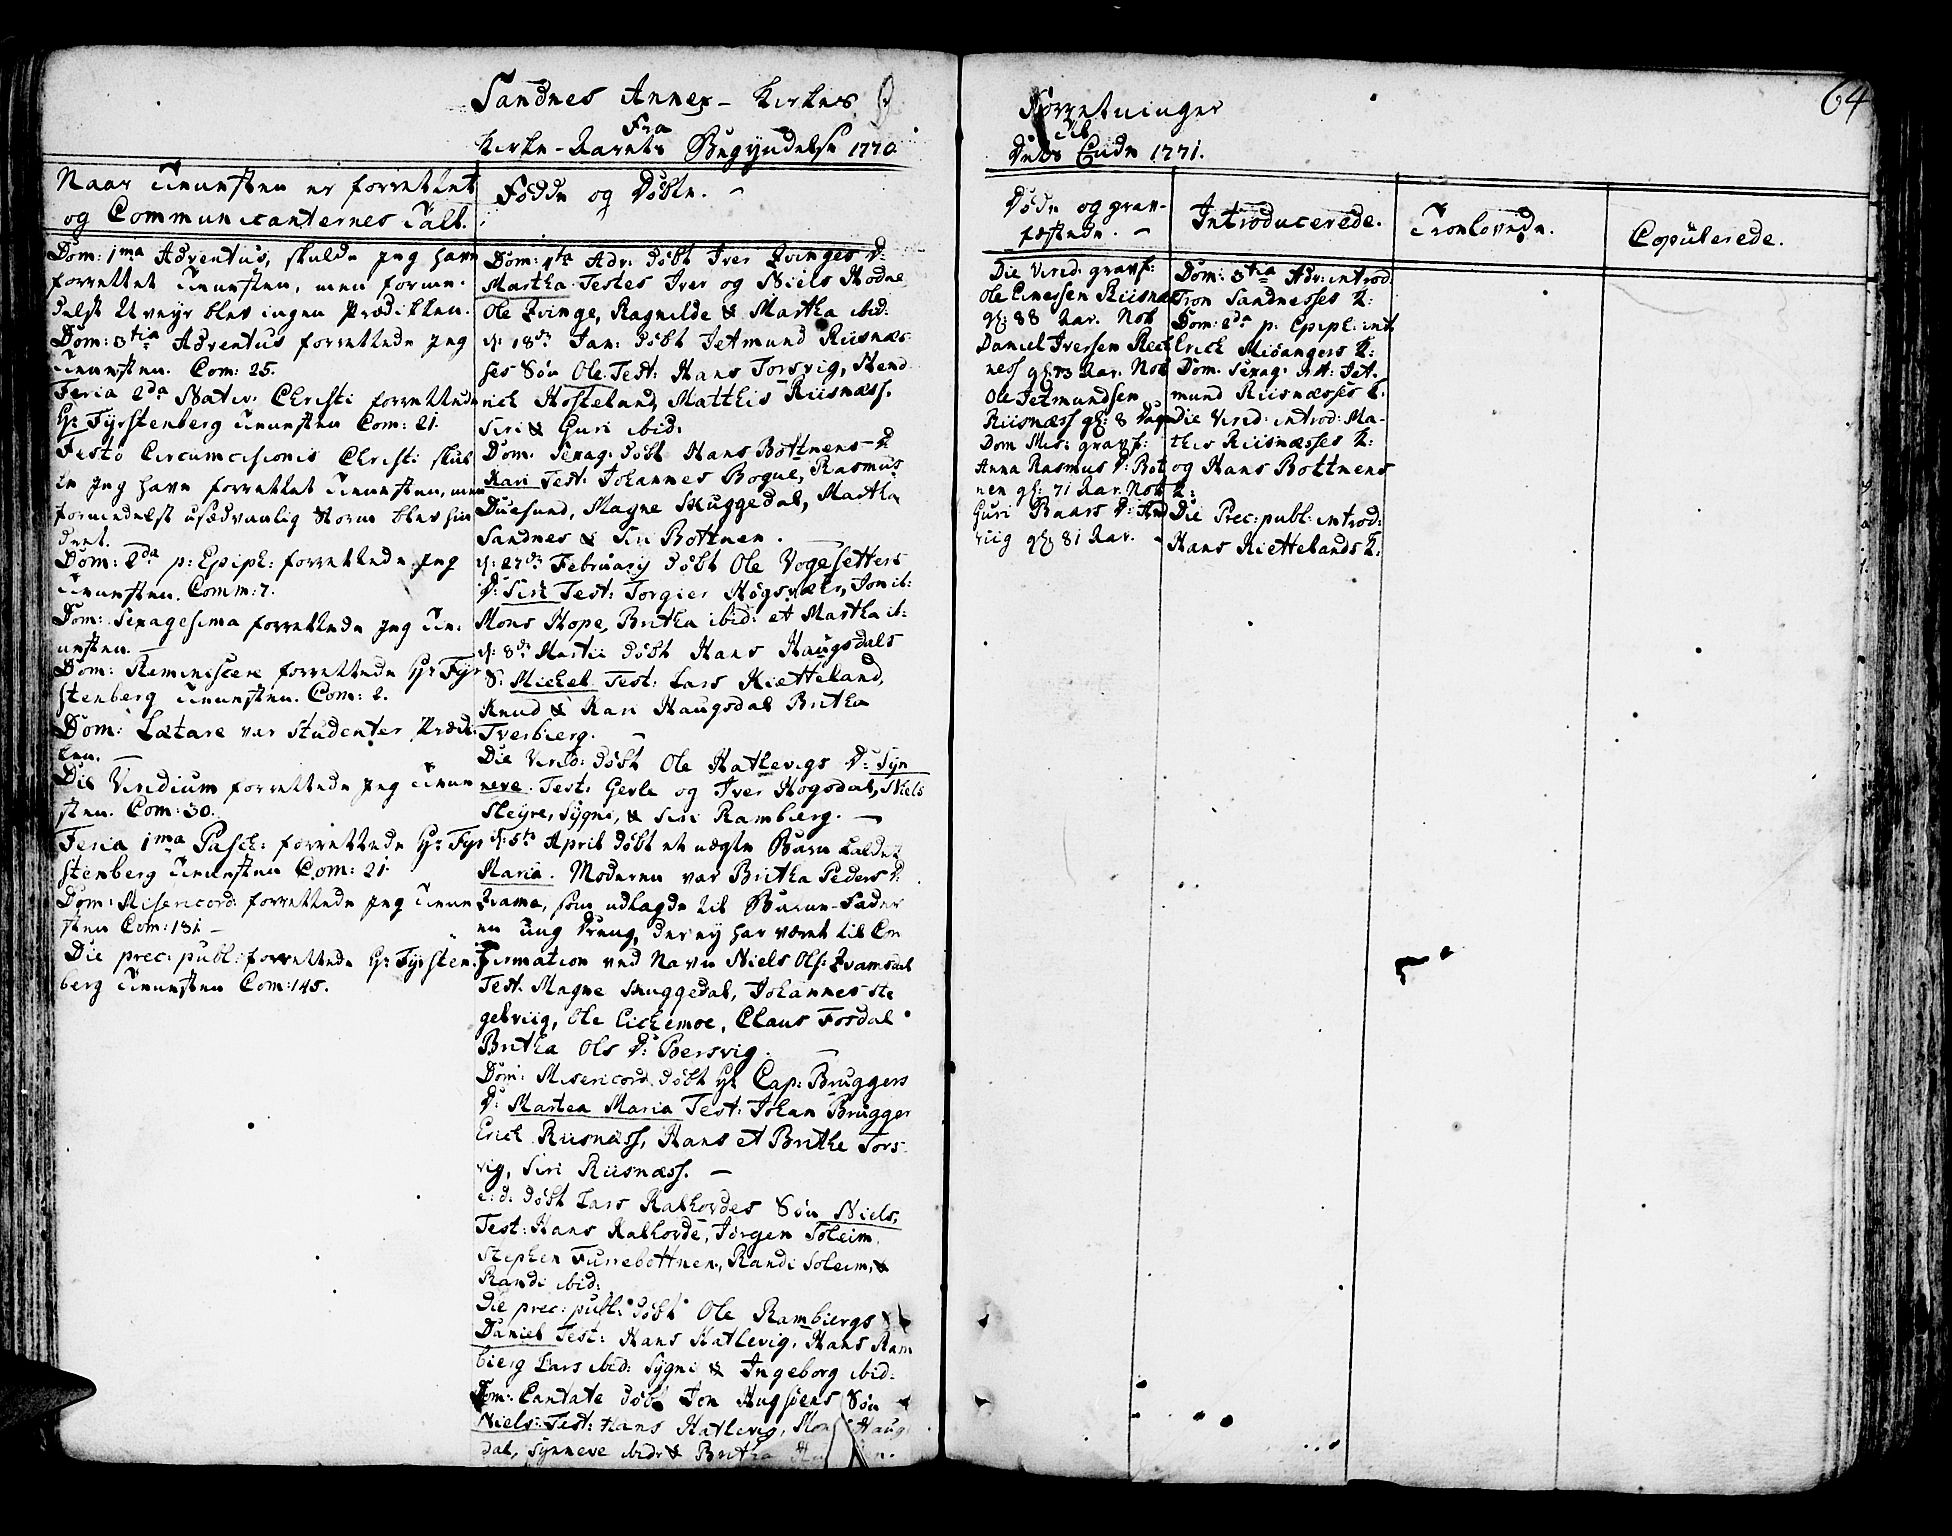 Sandnes Annex- Kirkes
Forretninger
64
Fra
Kirke-Aarets Begyndelse 1770.
til
Dets Ende 1771.
Naar Tienesten er forrettet
og Communicanternes Tall.
Dom: 1ma Adventus, skulde jeg have
forrettet Tienesten, men forme-
delst Uveyr blev ingen Prædiken.
Dom: 3tia Adventus forrettede jeg
Tienesten. Com: 25.
Feria 2da Nativ. Christi forrettede
Hr Fyrstenberg Tienesten Com: 21.
Festo Circumcisionis Christi skul
de jeg have forrettet Tienesten, men
formedelst usædvanlig Storm blev hin
dret.
Dom: 2da p: Epiph: forrettede jeg
Tienesten. Comm: 7.
Dom: Sexagesima forrettede jeg Tie-
nesten.
Dom: Reminiscere forrettede Hr Fyr
stenberg Tienesten. Com: 2.
Dom: Lætare var Studenter Prædi
ken.
Die Viridium forrettede jeg Tiene
sten. Com: 30.
Feria 1ma Pasch: forrettede Hr Fyr
stenberg Tienesten Com: 21.
Dom: Misericord: forrettede jeg Tiene
sten Com: 131 -
Die prec: publ: forrettede Hr Fyrsten-
berg Tienesten Com: 145.
Fødde og Døbte. -
Dom: 4ta Adv: døbt Iver Qvinges D:
Martha Testes Iver og Niels Hodne
Ole Qvinge, Ragnilde & Martha ibid.
d: 18de Jan: døbt Jetmund Riisnæs-
ses Søn Ole. Test: Hans Torsvig, Hend
rich Hosteland, Matthis Riisnæss.
Siri & Guri ibid:
Dom: Sexag: døbt Hans Bottnens D
Kari Test: Johannes Bogne, Rasmus
Duesund, Magne Skuggedal, Martha
Sandnes & Siri Bottnen.
d: 27de February døbt Ole Vogesetters
D: Siri Test: Torgier Høgsvær, Jon it:
Mons Hope, Britha ibid: et Martha it:
d: 8de Martii døbt Hans Haugsdals
S: Michel Test: Lars Kietteland,
Knud & Kari Haugsdal Britha
Tverbierg.
Die Virid: døbt Ole Hatlevigs D: Syn
neve. Test: Gerle og Iver Hogsdal, Niels
Sleyre, Sygni, & Siri Ramberg. -
d: 5te April døbt et uægte Barn kaldet
Maria. Moderen var Britha Peders D:
Qvame, som udlagde til Barne-Fader
en ung Dreng, der ey har været til Con
firmation ved Navn Niels Ols: Qvamsdal
Test. Magne Skuggedal, Johannes Ste
gelviig, Ole Eichemoe, Claus Fordal
Britha Ols D: Bersvig.
Dom: Misericord. døbt Hr Cap: Bruggers
D: Marten Maria Test: Johan Brugger
Erich Riisnæss, Hans et Brithe Tors-
vig, Siri Riisnæss. -
e: d: døbt Lars Kalhovdes Søn Niels,
Test: Hans Kalhovde, Jørgen Soleim,
Stephen Furrebottnen, Randi Soleim, &
Randi ibid:
Die prec: publ: døbt Ole Rambiergs
Daniel Test: Hans Hatlevig, Hans Ram
bierg Lars ibid: Sygni & Ingeborg ibid:
Dom: Cantate døbt Jon Hugsiens Søn
Niels: Test: Hans Hatlevig, Mon Haug
dal, Synneve ibid: & Britha
Døde og grav-
festede. -
Die Virid: gravf:
Ole Einessen Riisnæs
gl: 88 Aar. Nob
Daniel Iversen Reck
ness gl: 73 Aar. Nob
Ole Jetmundsen
Riisnæss gl: 8 Dage
Dom Mis: gravf:
Anna Rasmus D: Bot
nen gl: 71 Aar. Nob
Guri Baars D:
viig gl: 81 Aar.
Introducerede.
Dom: 3tia Adv: introd:
Tron Sandnesses K:
Dom: 2da p: Epiph: int.
Erich Misangers K:
Dom. Sexag: int: Jet.
mund Riisnæsses K.
Die Virid: introd: Ma-
this Riisnæsses K:
og Hans Bottnens
K:
Die Prec: publ: introd:
Hans Kiettelands K:
Troelovede.
Copulerede.